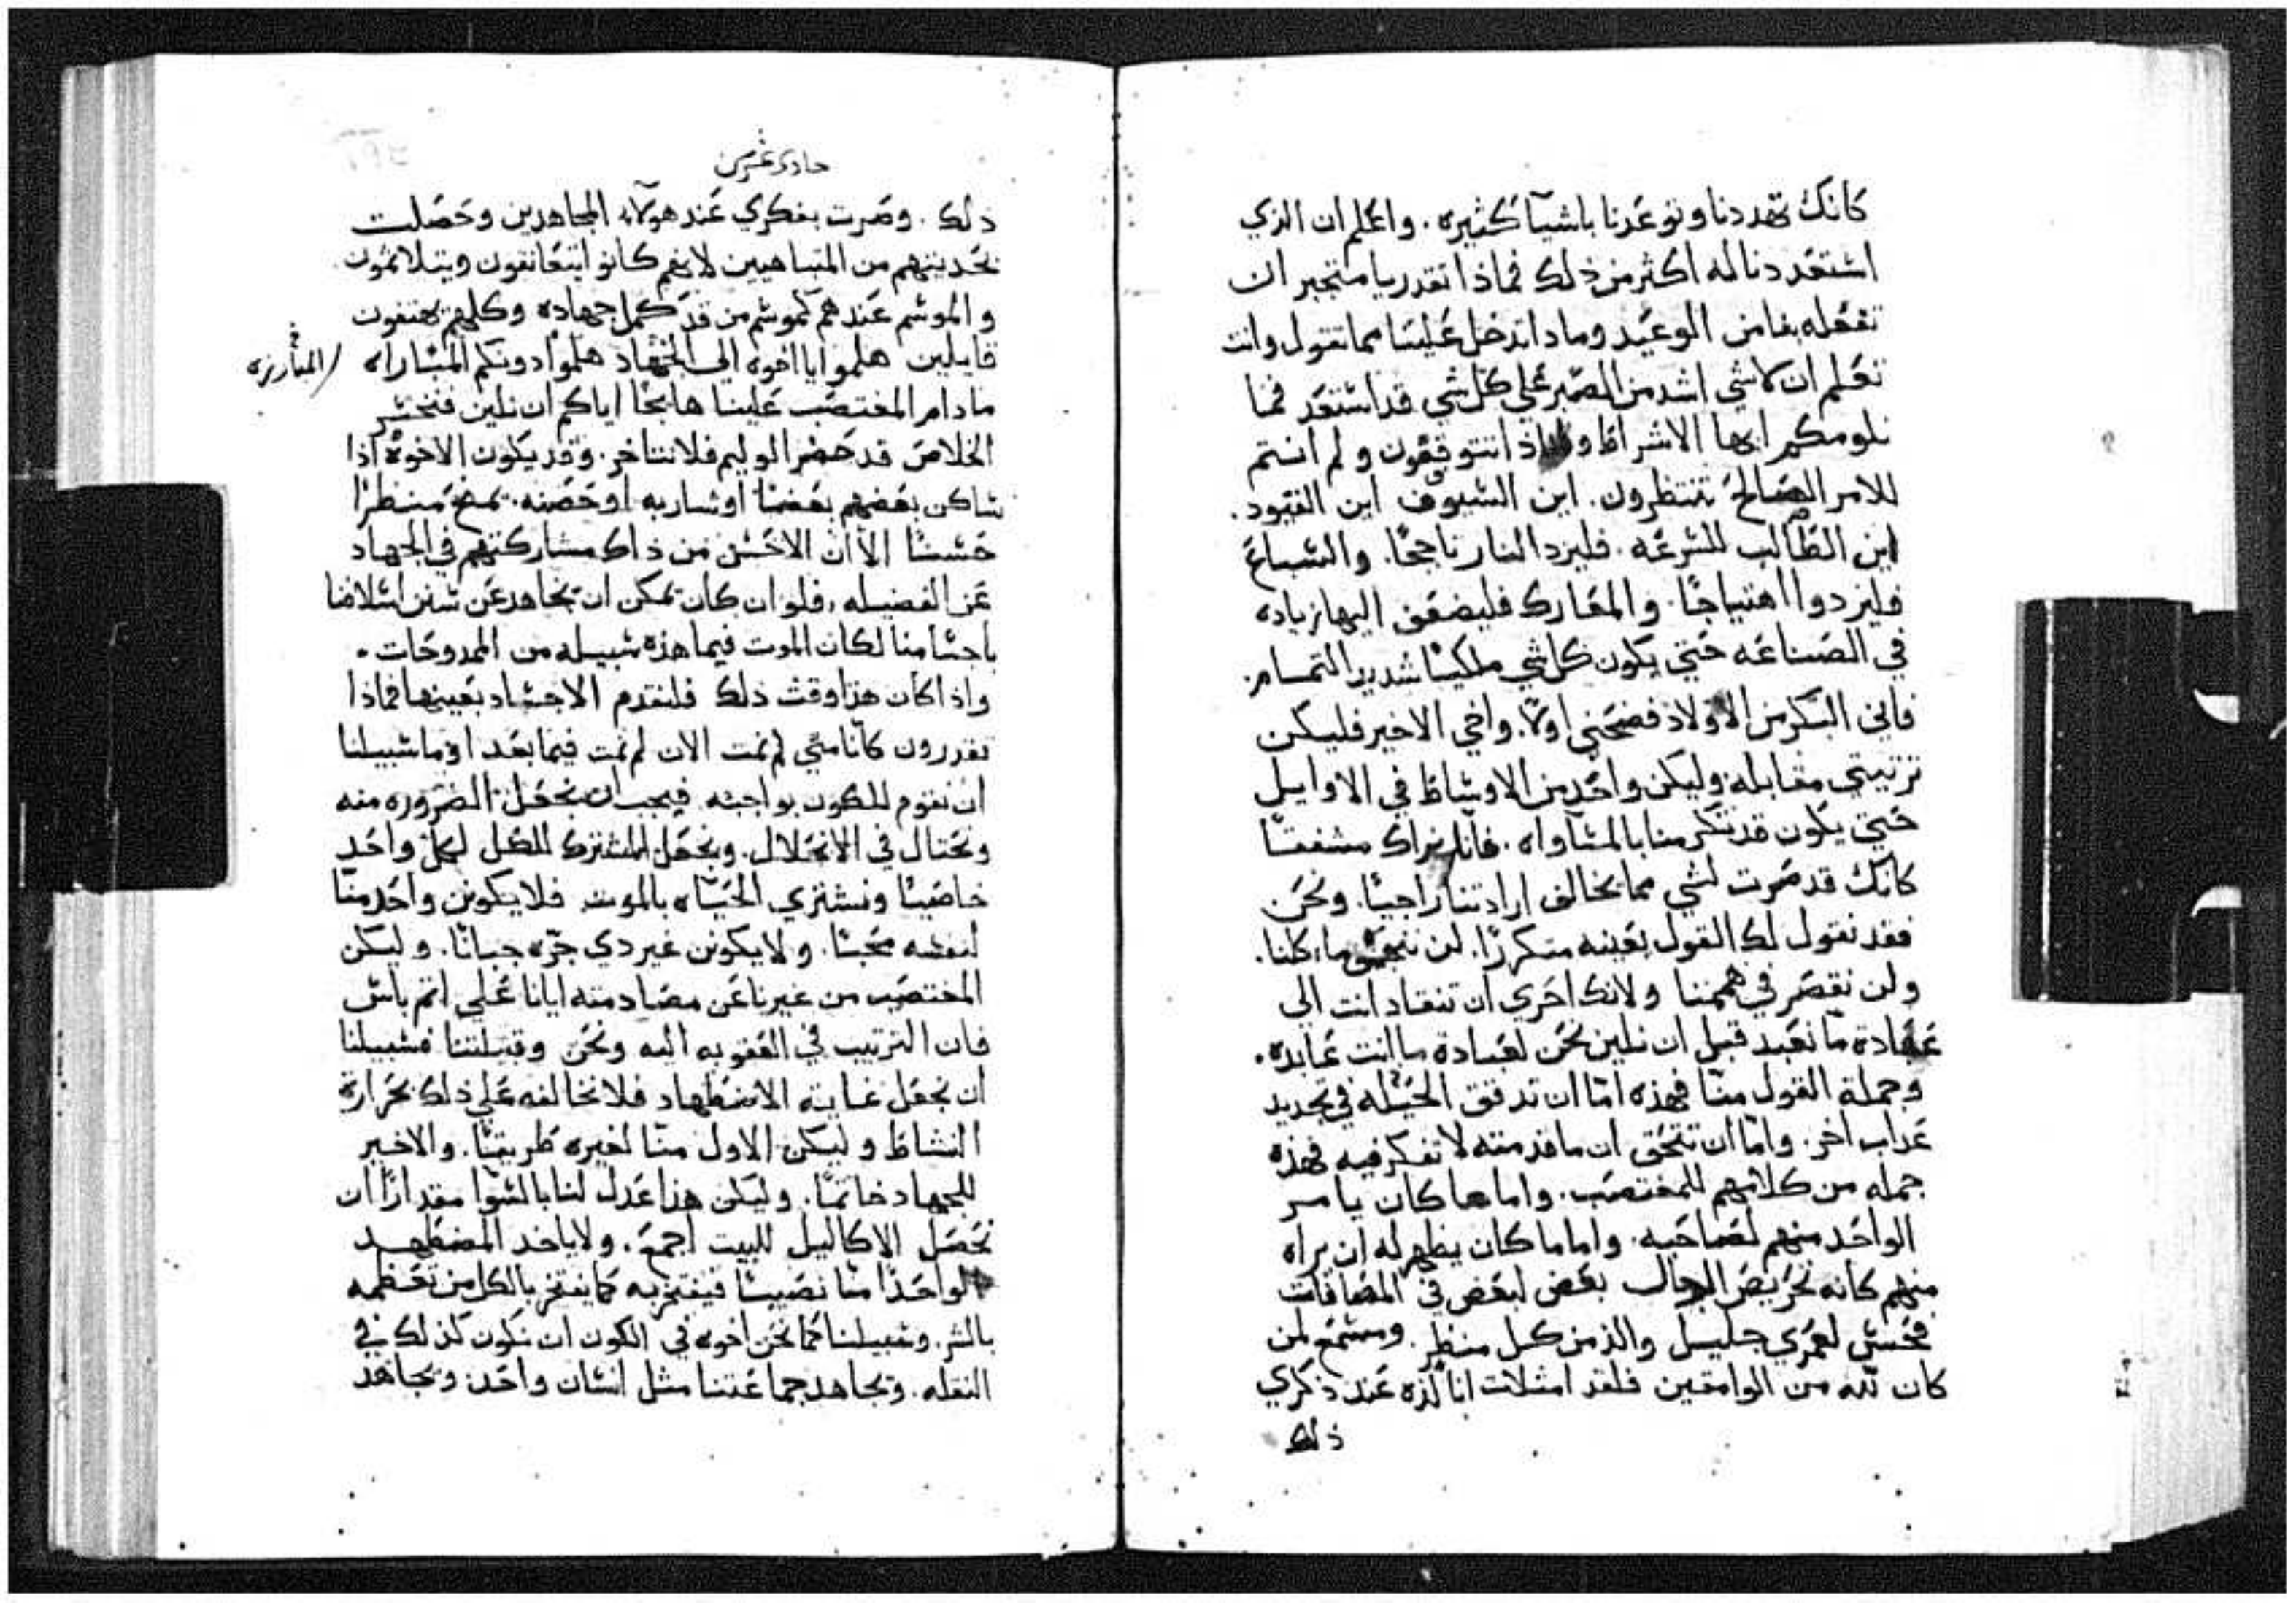 كانك تهددنا وتوعدنا باشيآ كثيره. واعلم ان الذي
استعددنا له اكثر من ذلك فماذا تقدر يا متجبر ان
تفعله بنا من الوعيد وماذا تدخل علينا مما تقول وانت
تعلم ان لا شي اشد من الصبر علي كل شي قد استعد فما
نلومكم ايها الاشراط تتوقعون و لم انتم
للامر الصالح تنتظرون. اين السيوف اين القيود.
اين الطالب للسرعه. فليزد النار تاججًا. والسباع
فليزدوا اهتياجًا. والمعارك فليضعف اليها زياده
في الصناعه حتي يكون كل شي ملكيًا شديد التمام.
فاني البكر من الاولاد فضحني اولًا. واخي الاخير فليكن
ترتيبي مقابله وليكن واحد من الاوساط في الاوايل
حتي يكون قد تكرمنا بالمساواه. نراك مشفقًا
كانك قد صرت لشي مما يخالف ارادتنا راجيًا. ونحن
فقد نقول لك القول بعينه متكررًا. لن ماكلنا.
ولن نقصر في هممنا ولانك احري ان تنقاد انت الي
عبادة ما نعبد قبل ان نلين نحن لعبادة ما انت عابده.
وجملة القول منا فهذه اما ان تدقق الحيله في تجديد
عداب اخر. واما ان تتحقق ان ما قدمته لا تفكر فيه فهذه
جمله من كلامهم للمغتصب. واما ما كان يامر
الواحد منهم لصاحبه. واماما كان يظهر له ان يراه
منهم كانه تحريض الرجال بعض لبعض في المصافات
فحسن لعمري جليل والذ من كل منظر. ومستمع لمن
كان لله من الوامقين فلقد امتلات انا لذه عند ذكري
ذلك
حادي عشرين
ذلك. وصرت بفكري عند هولآء المجاهدين وحصلت
بحديثهم من المتباهيين لانهم كانوا يتعانقون ويتلاثمون
والموسم عندهم كموسم من قد كمل جهاده وكلهم يهتفون
قايلين هلموا يا اخوه الي الجهاد هلموا دونكم المباراه
المبارزه
ما دام المغتصب علينا هايجًا اياكم ان نلين فنخسر
الخلاص قد حضر الوليم فلا نتاخر. وقد يكون الاخوة اذا
ساكن بعضهم بعضًا او شاربه او حضنه. يمنح منظرًا
حسنًا الا ان الاحسن من ذاك مشاركتهم في الجهاد
عن الفضيله. فلو ان كان يمكن ان نجاهد عن سنن اسلافنا
باجسامنا لكان الموت فيما هذه سبيله من الممدوحات.
واذ اكان هذا وقت ذلك فلنقدم الاجساد بعينها فماذا
تقدرون كاننا متي لم نمت الان لم نمت فيما بعد او ما سبيلنا
ان نقوم للكون بواجبه فيجب ان نجعل الضروره منه
ونحتال في الانحلال. ونجعل المشترك للكل لكل واحد
خاصيًا ونشتري الحياه بالموت فلا يكونن واحد منا
لنفسه محبًا. ولا يكونن غير دي جره جبانًا. وليكن
المغتصب من غيرنا عن مصادمته ايانا علي اتم ياس
فان الترتيب في العقوبه اليه ونحن وقبيلتنا فسبيلنا
ان نجعل غاية الاضطهاد فلا نخالفه علي ذلك بحرارة
النشاط وليكن الاول منا لغيره طريقًا. والاخير
للجهاد خاتمًا. وليكن هذا عدل لنا بالسوا مقدارًا ان
نحصل الاكاليل للبيت اجمع. ولا ياخد المضطهد
لواحدًا منا نصيبًا فيفتخر به كما يفتخر بالكل من تعظمه
بالشر. وسبيلنا كما نحن اخوه في الكون ان نكون كذلك في
النقله. ونجاهد جماعتنا مثل انسان واحد. ونجاهد